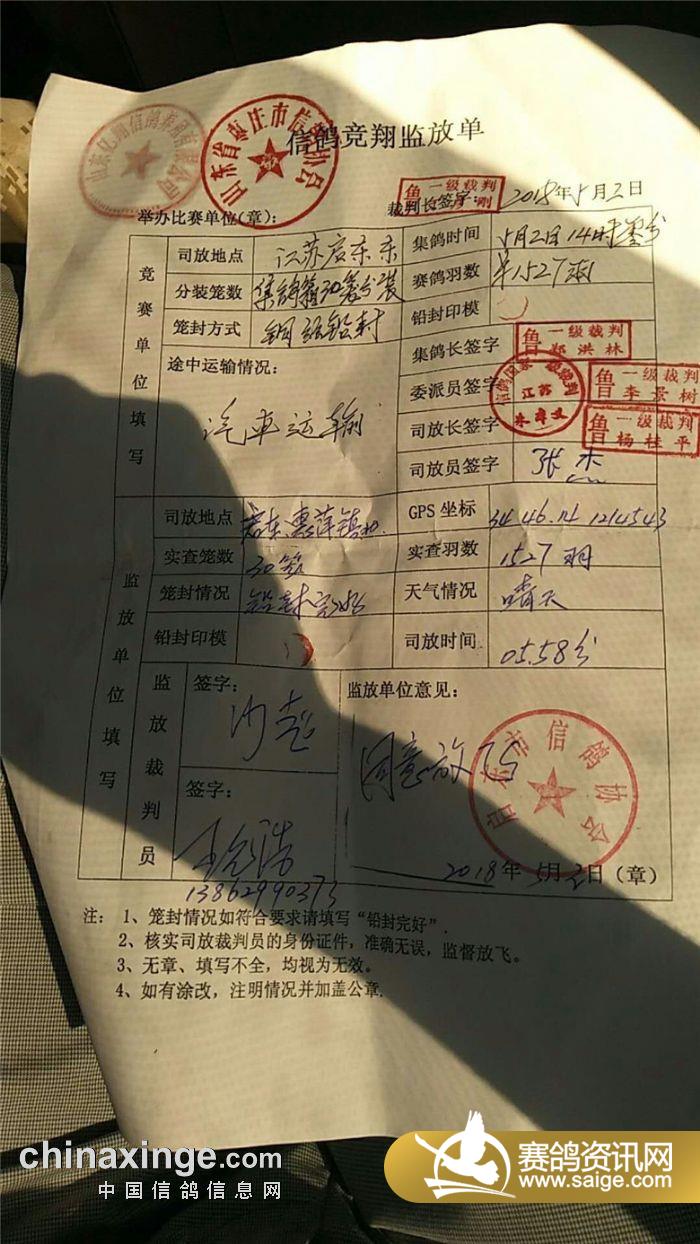 信鸽竞翔监放单
山东省枣庄市信鸽协会
举办比赛单位(章):
裁判长签字:
鲁 一级裁判
2018年5月2日
竞赛单位填写
司放地点 江苏启东东
集鸽时间 5月2日14时
分装笼数 集鸽箱30笼分装
赛鸽羽数 1527羽
笼封方式
铅封印模
途中运输情况:
汽车运输
集鸽长签字
鲁 一级裁判 郑洪林
委派员签字
江苏
鲁 一级裁判 李景树
司放长签字
鲁 一级裁判 杨桂平
司放员签字 张杰
监放单位填写
司放地点 启东惠萍镇
GPS 坐标
实查笼数 30笼
实查羽数 1527羽
笼封情况 铅封完好
天气情况 晴天
铅封印模
司放时间 05.58分
监放裁判员
签字:
签字:
13862990373
监放单位意见:
同意放飞
启东市信鸽协会
2018年5月2日(章)
注: 1、笼封情况如符合要求请填写“铅封完好”.
2、核实司放裁判员的身份证件,准确无误,监督放飞。
3、无章、填写不全,均视为无效。
4、如有涂改,注明情况并加盖公章.
chinaxinge.com
中国信鸽信息网
赛鸽资讯网
www.saige.com